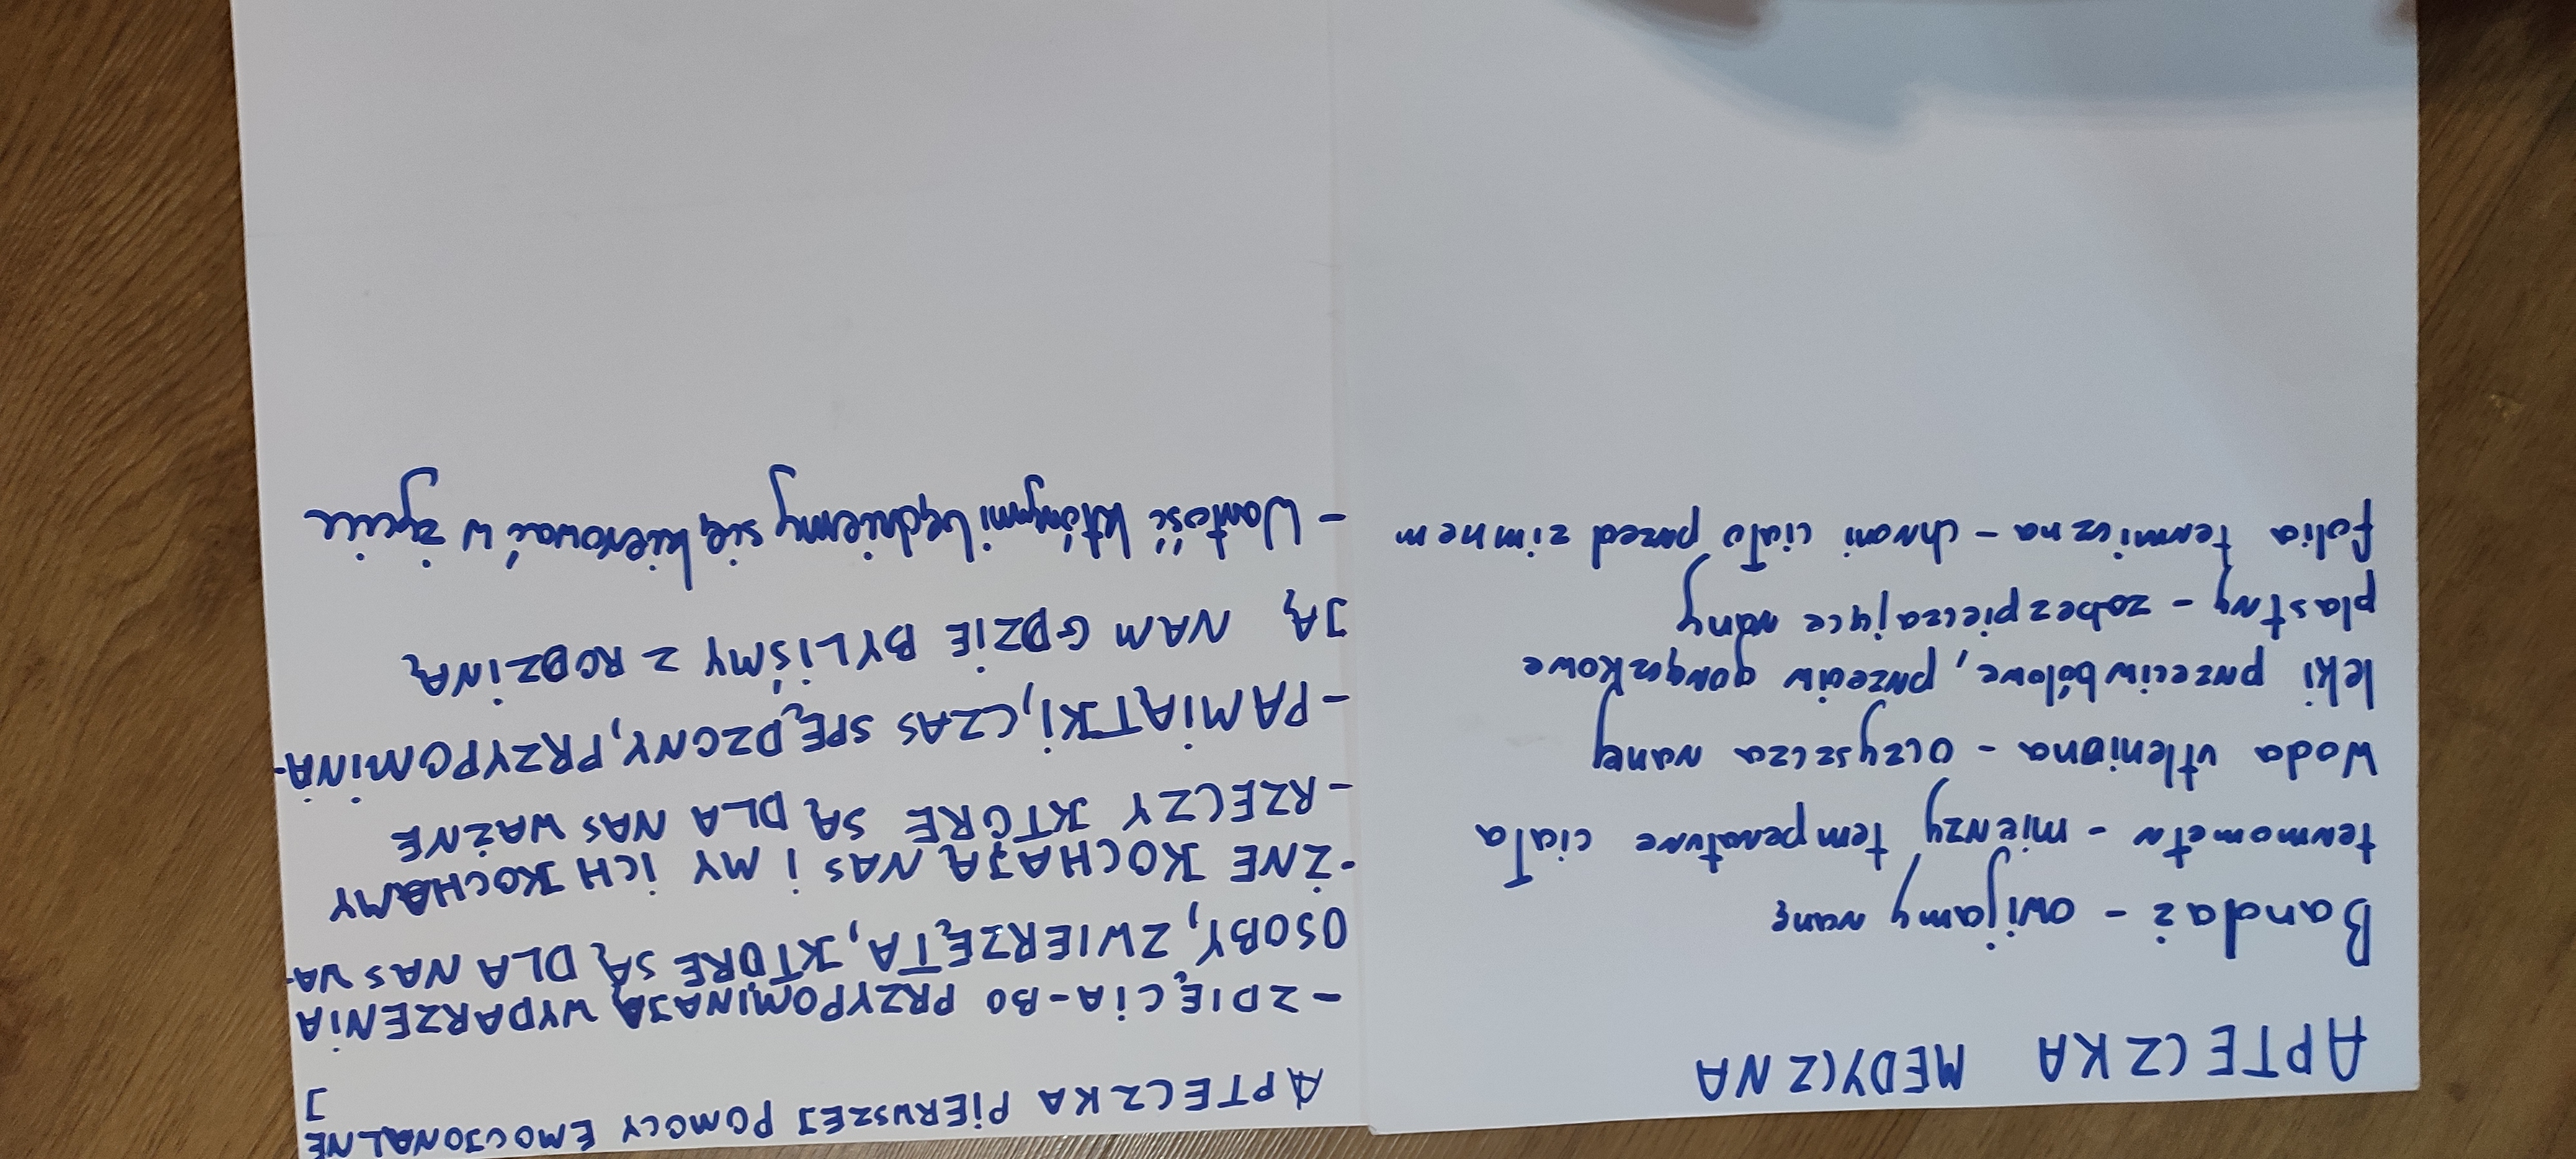 APTECZKA MEDYCZNA
Bandaż - owijamy ranę
termometr - mierzy temperature ciała
Woda utleniona - oczyszcza ranę
leki przeciwbólowe, przeciw gorączkowe
plastry - zabezpieczające rany
folia termiczna - chroni ciało przed zimnem
APTECZKA PIERWSZEJ POMOCY EMOCJONALNE
J
- ZDIĘCIA - BO PRZYPOMINAJĄ WYDARZENIA
OSOBY, ZWIERZĘTA, KTÓRE SĄ DLA NAS WA-
-ŻNE KOCHAJĄ NAS i MY ICH KOCHAMY
- RZECZY KTÓRE SĄ DLA NAS WAŻNE
- PAMIĄTKI, CZAS SPĘDZONY, PRZYPOMINA-
JĄ NAM GDZIE BYLIŚMY Z RODZINĄ
- Wartość którymi będziemy się kierować w życiu